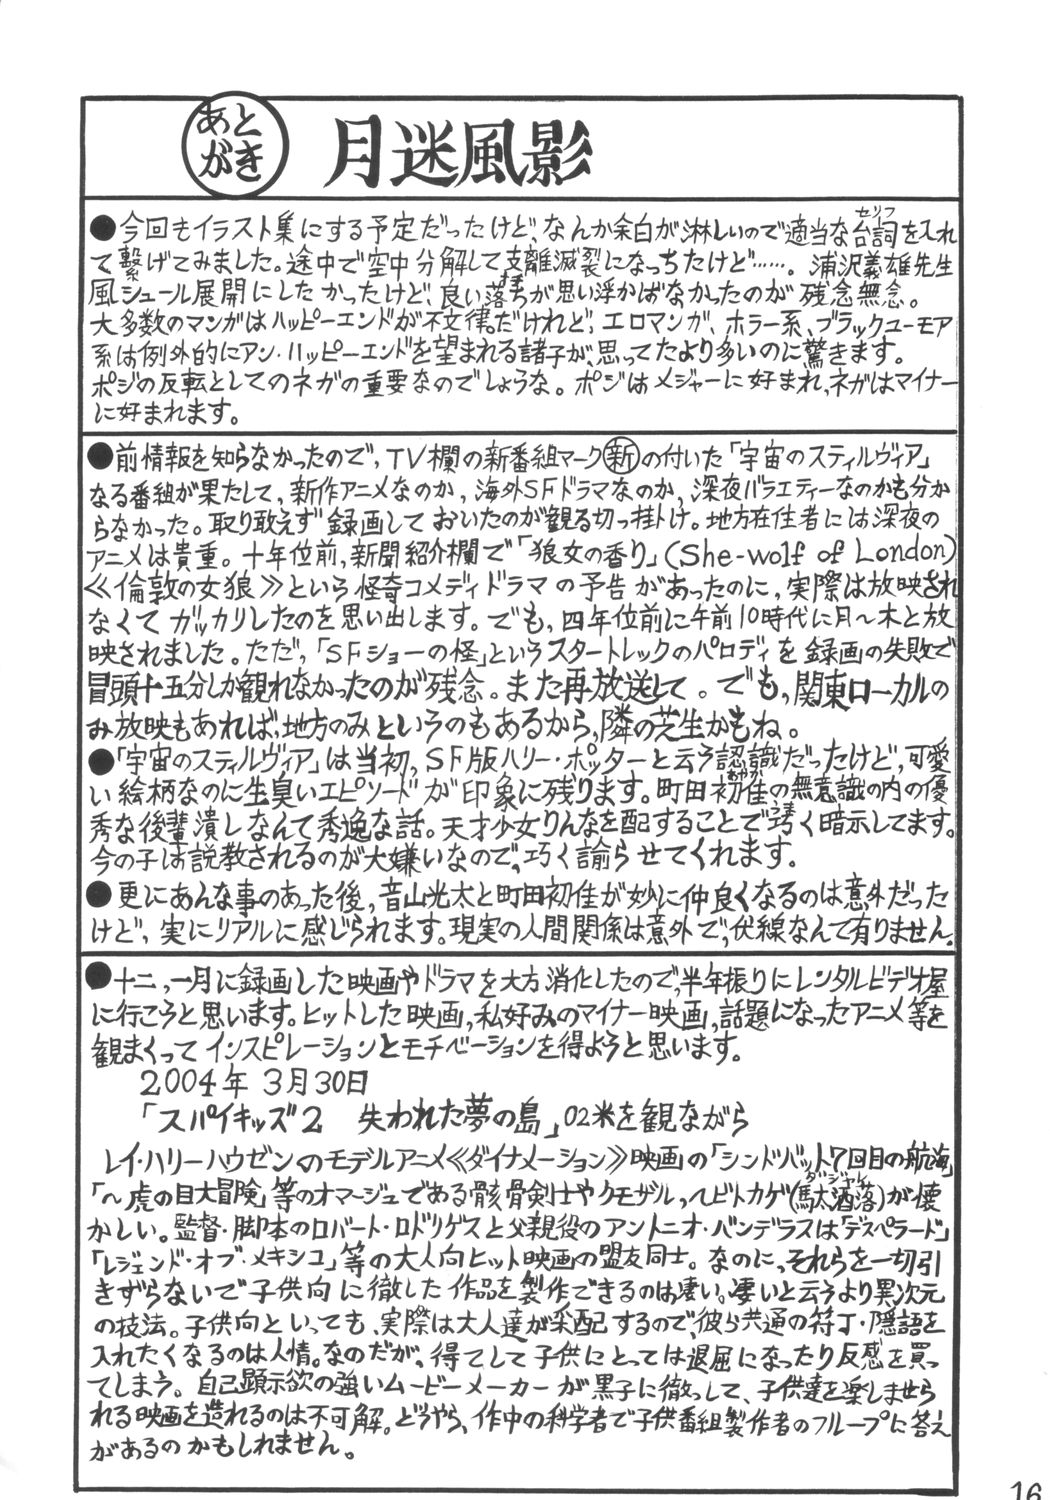 あとがき 月迷風影
●今回もイラスト集にする予定だったけど、なんか余白が淋しいので適当な台詞を入れ
て繋げてみました。途中で空中分解して支離滅裂になっちたけど……。浦沢義雄先生
風シュール展開にしたかったけど、良い落ちが思い浮かばなかったのが残念無念。
大多数のマンガはハッピーエンドが不文律だけれど、エロマンガ、ホラー系、ブラックユーモア
系は例外的にアン・ハッピーエンドを望まれる諸子が、思ってたより多いのに驚きます。
ポジの反転としてのネガの重要なのでしょうな。ポジはメジャーに好まれ、ネガはマイナー
に好まれます。
●前情報を知らなかったので、TV欄の新番組マーク新の付いた「宇宙のスティルヴィア」
なる番組が果たして、新作アニメなのか、海外SFドラマなのか、深夜バラエティーなのかも分か
らなかった。取り敢えず録画しておいたのが観る切っ掛け。地方在住者には深夜の
アニメは貴重。十年位前、新聞紹介欄で「狼女の香り」(She-wolf of London)
≪倫敦の女狼≫という怪奇コメディドラマの予告があったのに、実際は放映され
なくてガッカリしたのを思い出します。でも、四年位前に午前10時代に月～木と放
映されました。ただ、「SFショーの怪」というスタートレックのパロディを録画の失敗で
冒頭十五分しか観れなかったのが残念。また再放送して。でも、関東ローカルの
み放映もあれば、地方のみというのもあるから、隣の芝生かもね。
●「宇宙のスティルヴィア」は当初、SF版ハリー・ポッターと云う認識だったけど、可愛
い絵柄なのに生臭いエピソードが印象に残ります。町田初佳の無意識の内の優
秀な後輩潰しなんて秀逸な話。天才少女りんなを配することで巧く暗示してます。
今の子は説教されるのが大嫌いなので、巧く諭らせてくれます。
●更にあんな事のあった後、音山光太と町田初佳が妙に仲良くなるのは意外だった
けど、実にリアルに感じられます。現実の人間関係は意外で、伏線なんて有りません。
●十二、一月に録画した映画やドラマを大方消化したので、半年振りにレンタルビデオ屋
に行こうと思います。ヒットした映画、私好みのマイナー映画、話題になったアニメ等を
観まくってインスピレーションとモチベーションを得ようと思います。
2004年 3月30日
「スパイキッズ2 失われた夢の島」02米を観ながら
レイ・ハリーハウゼンのモデルアニメ≪ダイナメーション≫映画の「シンドバット7回目の航海」
「～虎の目大冒険」等のオマージュである骸骨剣士やクモザル、ヘビトカゲ(馬太洒落)が懐
かしい。監督・脚本のロバート・ロドリゲスと父親役のアントニオ・バンデラスは「デスペラード」
「レジェンド・オブ・メキシコ」等の大人向ヒット映画の盟友同士。なのに、それらを一切引
きずらないで子供向に徹した作品を製作できるのは凄い。凄いと云うより異次元
の技法。子供向といっても、実際は大人達が采配するので、彼ら共通の符丁・隠語を
入れたくなるのは人情。なのだが、得てして子供にとっては退屈になったり反感を買っ
てしまう。自己顕示欲の強いムービーメーカーが黒子に徹っして、子供達を楽しませら
れる映画を造れるのは不可解。どうやら、作中の科学者で子供番組製作者のフループに答え
があるのかもしれません。
16